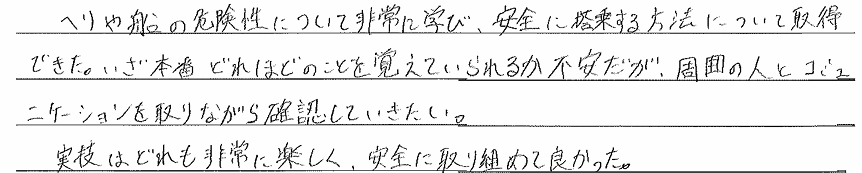 ヘリや船の危険性について非常に学び、安全に搭乗する方法について取得
できた。いざ本番どれほどのことを覚えていられるか不安だが、周囲の人とコミュ
ニケーションを取りながら確認していきたい。
実技はどれも非常に楽しく、安全に取り組めて良かった。